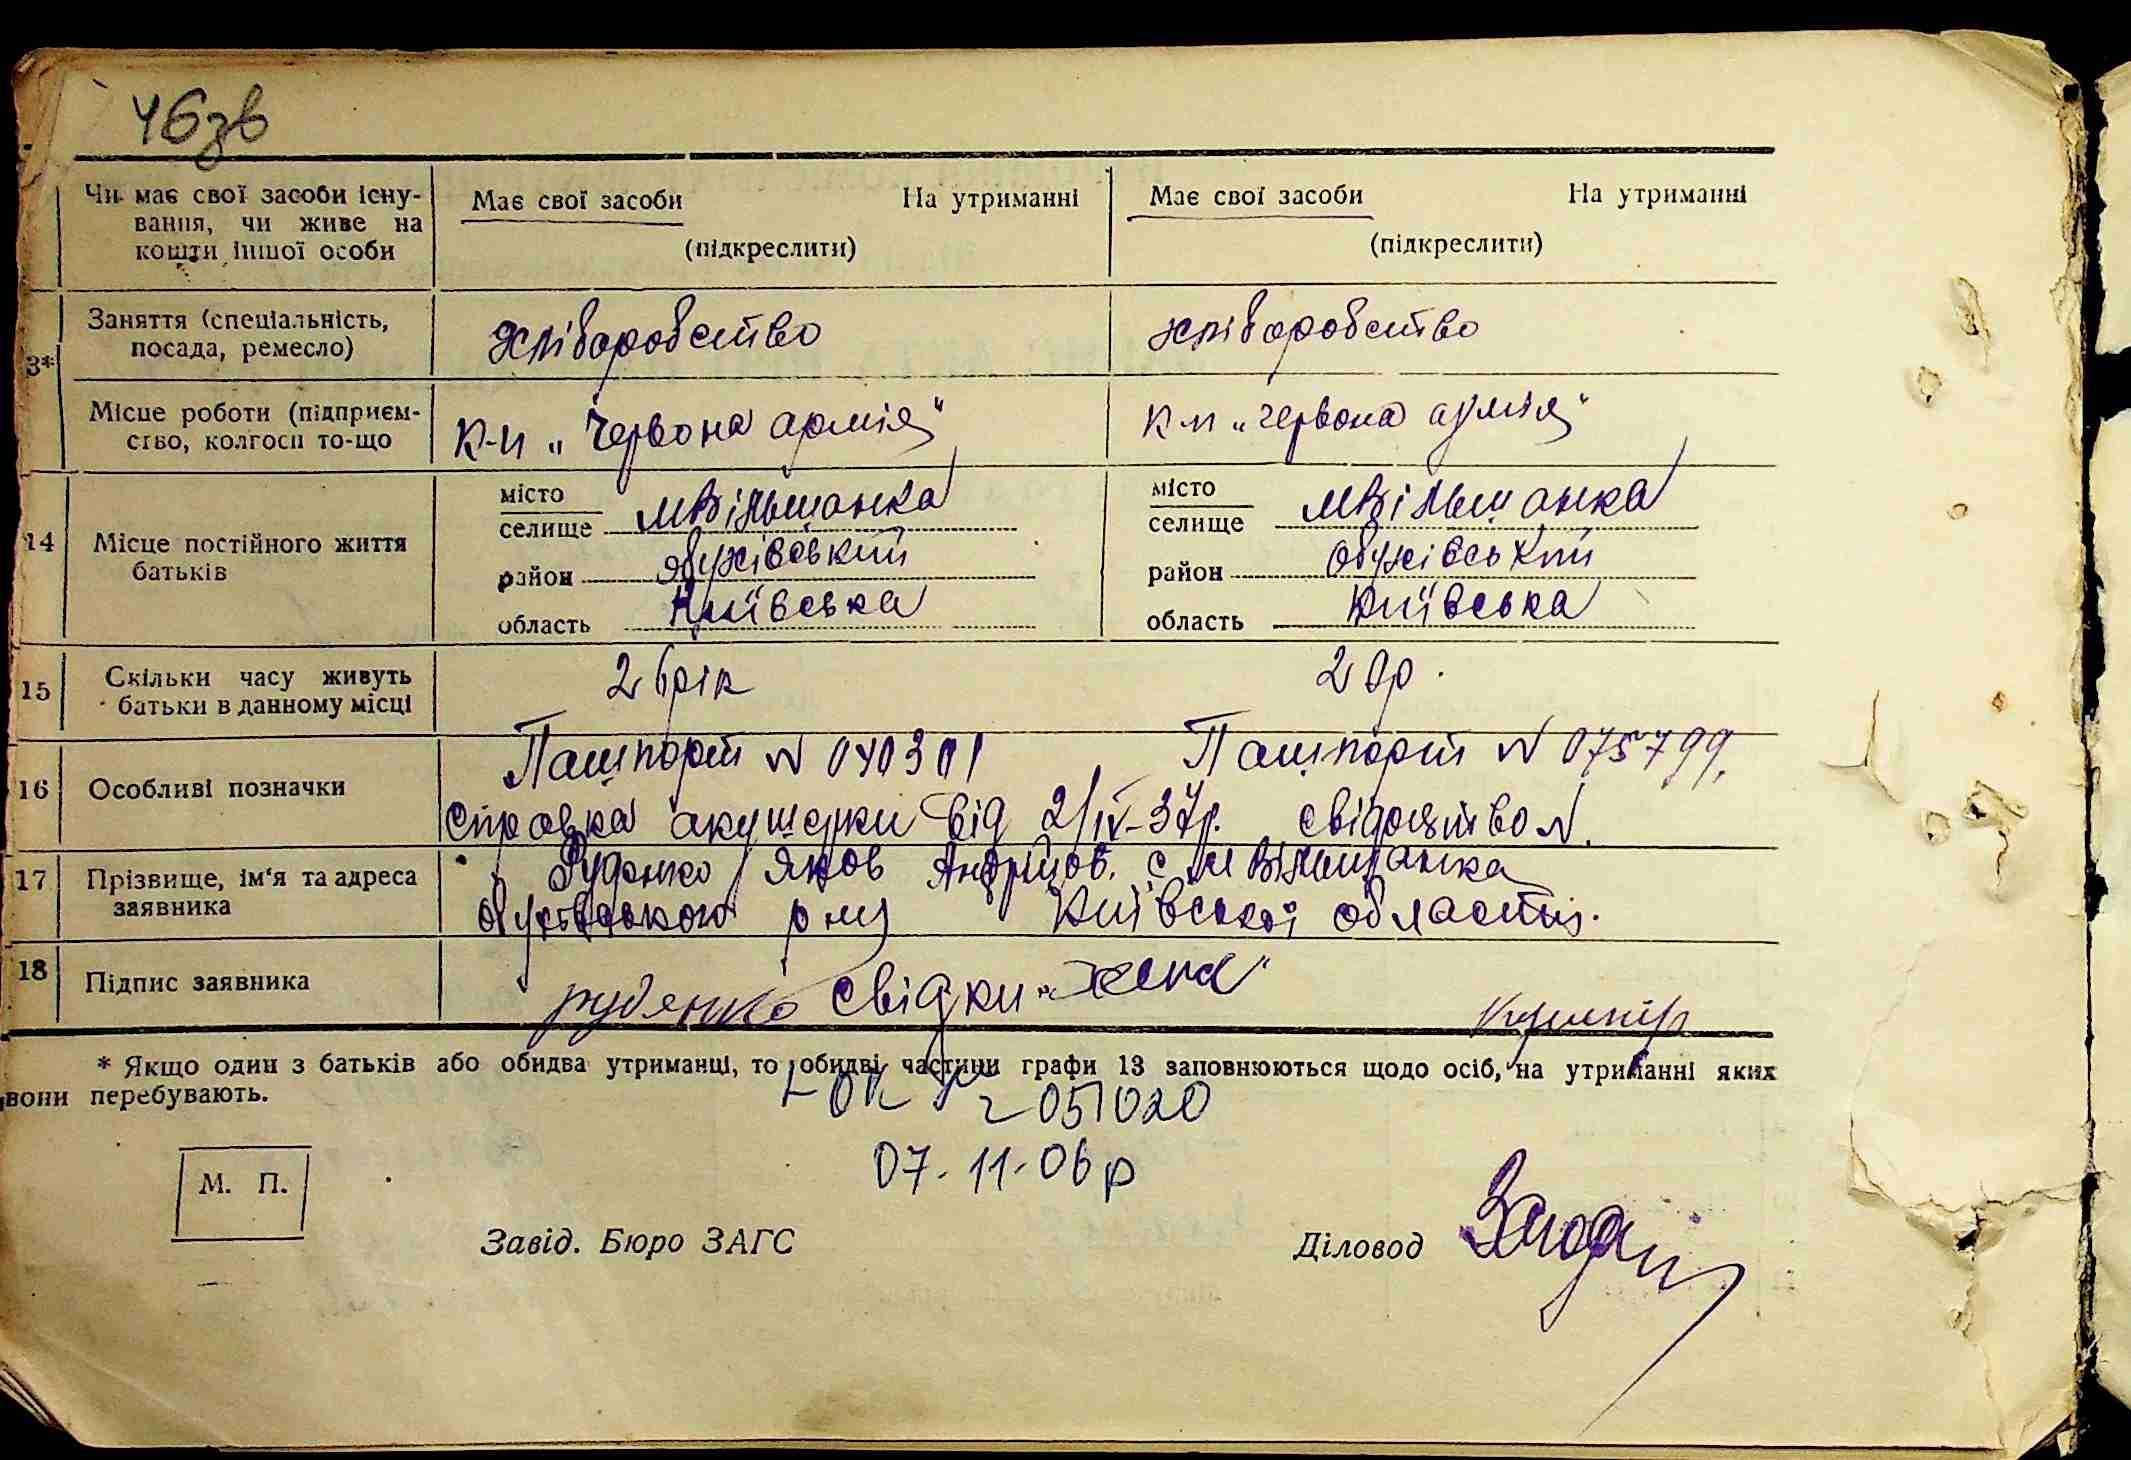 46зв
Чи має свої засоби існування, чи живе на кошти іншої особи
Має свої засоби На утриманні
(підкреслити)
Має свої засоби На утриманні
(підкреслити)
3*
Заняття (спеціальність,
посада, ремесло)
хліборобство
хліборобство
Місце роботи (підприєм-
ство, колгосп то-що
к-п „Червона армія"
к-п „Червона армія"
14
Місце постійного життя
батьків
місто
селище мВільшанка
район обухівський
область Київська
місто
селище мВільшанка
район обухівський
область Київська
15
Скільки часу живуть
батьки в данному місці
26 рік
20 р.
16
Особливі позначки
Пашпорт N 040301 Пашпорт N 075799.
справка акушерки від 2/IV-37р. свідоцтво N.
17
Прізвище, ім'я та адреса
заявника
Руденко Яков Андрійов. с. мВільшанка
обухівського р-ну Київської області.
18
Підпис заявника
руденко свідки
* Якщо один з батьків або обидва утриманці, то обидві частини графи 13 заповнюються щодо осіб, на утриманні яких
вони перебувають.
051020
07.11.06р
М. П.
Завід. Бюро ЗАГС
Діловод